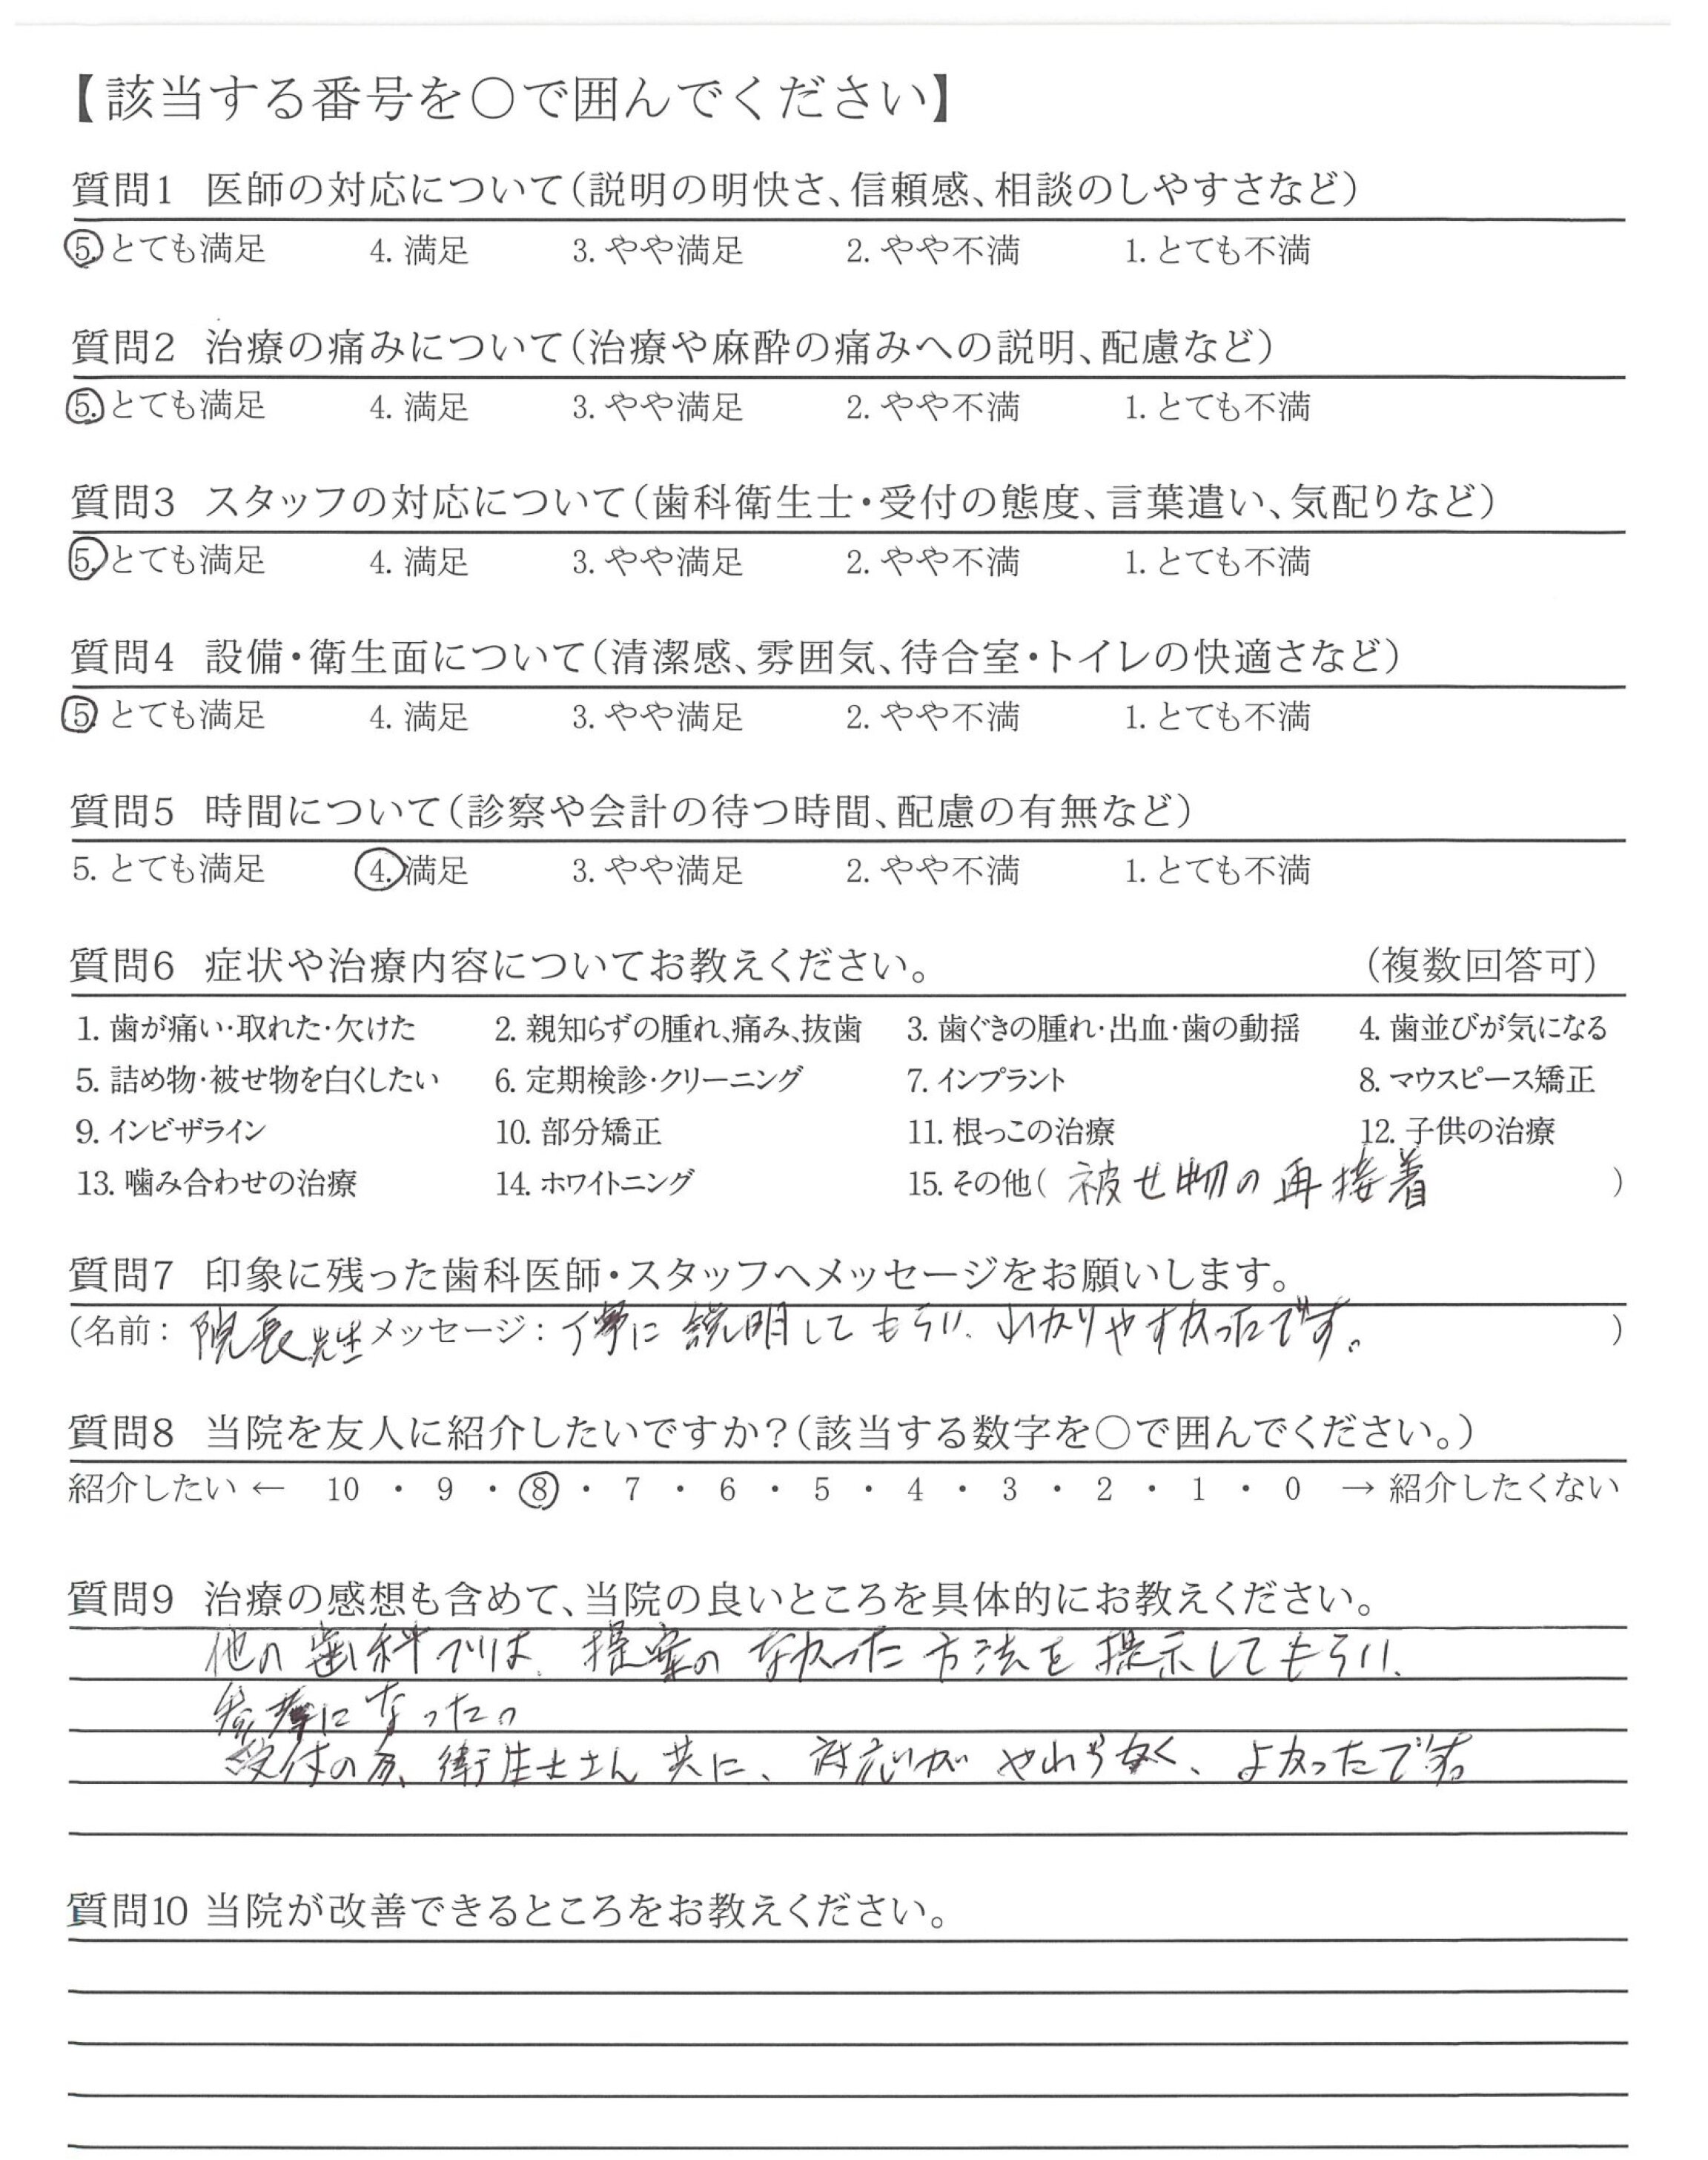 【該当する番号を〇で囲んでください】
質問1 医師の対応について(説明の明快さ、信頼感、相談のしやすさなど)
5. とても満足 4. 満足 3. やや満足 2. やや不満 1. とても不満
質問2 治療の痛みについて(治療や麻酔の痛みへの説明、配慮など)
5. とても満足 4. 満足 3. やや満足 2. やや不満 1. とても不満
質問3 スタッフの対応について(歯科衛生士・受付の態度、言葉遣い、気配りなど)
5. とても満足 4. 満足 3. やや満足 2. やや不満 1. とても不満
質問4 設備・衛生面について(清潔感、雰囲気、待合室・トイレの快適さなど)
5. とても満足 4. 満足 3. やや満足 2. やや不満 1. とても不満
質問5 時間について(診察や会計の待つ時間、配慮の有無など)
5. とても満足 4. 満足 3. やや満足 2. やや不満 1. とても不満
質問6 症状や治療内容についてお教えください。 (複数回答可)
1. 歯が痛い・取れた・欠けた 2. 親知らずの腫れ、痛み、抜歯 3. 歯ぐきの腫れ・出血・歯の動揺 4. 歯並びが気になる
5. 詰め物・被せ物を白くしたい 6. 定期検診・クリーニング 7. インプラント 8. マウスピース矯正
9. インビザライン 10. 部分矯正 11. 根っこの治療 12. 子供の治療
13. 噛み合わせの治療 14. ホワイトニング 15. その他( 被せ物の再接着 )
質問7 印象に残った歯科医師・スタッフへメッセージをお願いします。
(名前: 院長先生 メッセージ: 丁寧に説明してもらい、わかりやすかったです。 )
質問8 当院を友人に紹介したいですか?(該当する数字を〇で囲んでください。)
紹介したい ← 10 ・ 9 ・ 8 ・ 7 ・ 6 ・ 5 ・ 4 ・ 3 ・ 2 ・ 1 ・ 0 → 紹介したくない
質問9 治療の感想も含めて、当院の良いところを具体的にお教えください。
他の歯科では、提案のなかった方法を提示してもらい、
参考になった。
受付の方、衛生士さん共に、対応がやわらかく、よかったです。
質問10 当院が改善できるところをお教えください。